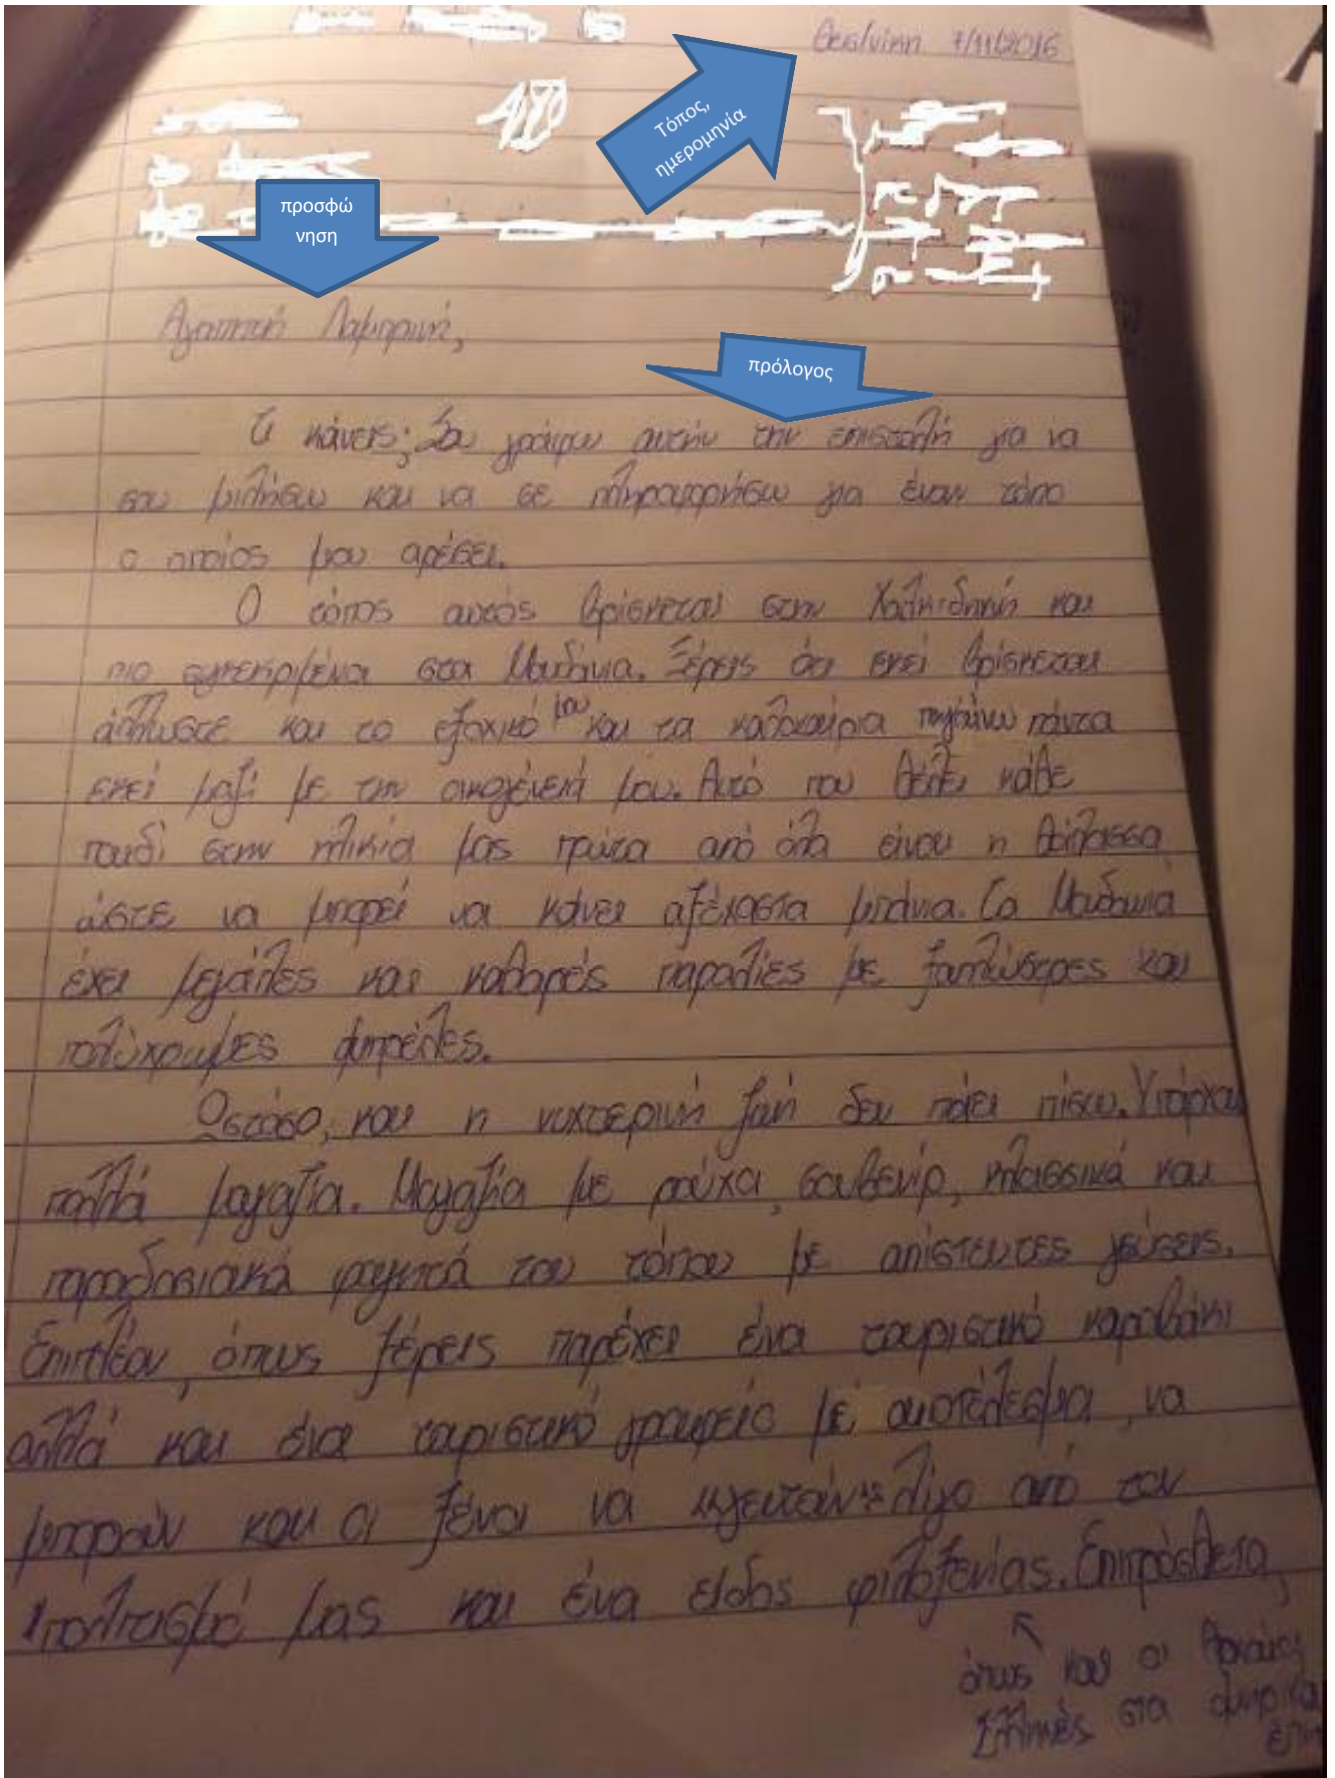 Θεσ/νίκη 7/11/2016
Τόπος,
ημερομηνία
προσφώ
νηση
Αγαπητή Λαμπρινή,
πρόλογος
Τι κάνεις; Σου γράφω αυτήν την επιστολή για να
σου μιλήσω και να σε πληροφορήσω για έναν τόπο
ο οποίος μου αρέσει.
Ο τόπος αυτός βρίσκεται στην Χαλκιδική και
πιο συγκεκριμένα στα Μουδανιά. Ξέρεις ότι εκεί βρίσκεται
άλλωστε και το εξοχικό μου και τα καλοκαίρια πηγαίνω πάντα
εκεί μαζί με την οικογένειά μου. Αυτό που θέλει κάθε
παιδί στην ηλικία μας πρώτα από όλα είναι η θάλασσα
ώστε να μπορεί να κάνει αξέχαστα μπάνια. Τα Μουδανιά
έχει μεγάλες και καθαρές παραλίες με ξαπλώστρες και
πολύχρωμες ομπρέλες.
Ωστόσο, και η νυχτερινή ζωή δεν πάει πίσω. Υπάρχουν
πολλά μαγαζία. Μαγαζία με ρούχα, σουβενίρ, κλασσικά και
παραδοσιακά φαγητά του τόπου με απίστευτες γεύσεις.
Επιπλέον, όπως ξέρεις παρέχει ένα τουριστικό καραβάκι
αλλά και ένα τουριστικό γραφείο με αποτέλεσμα, να
μπορούν και οι ξένοι να λίγο από τον
πολιτισμό μας και ένα είδος φιλοξενίας. Επιπρόσθετα,
όπως και οι Αρχαίοι
Έλληνες στα ομηρικά
έπη